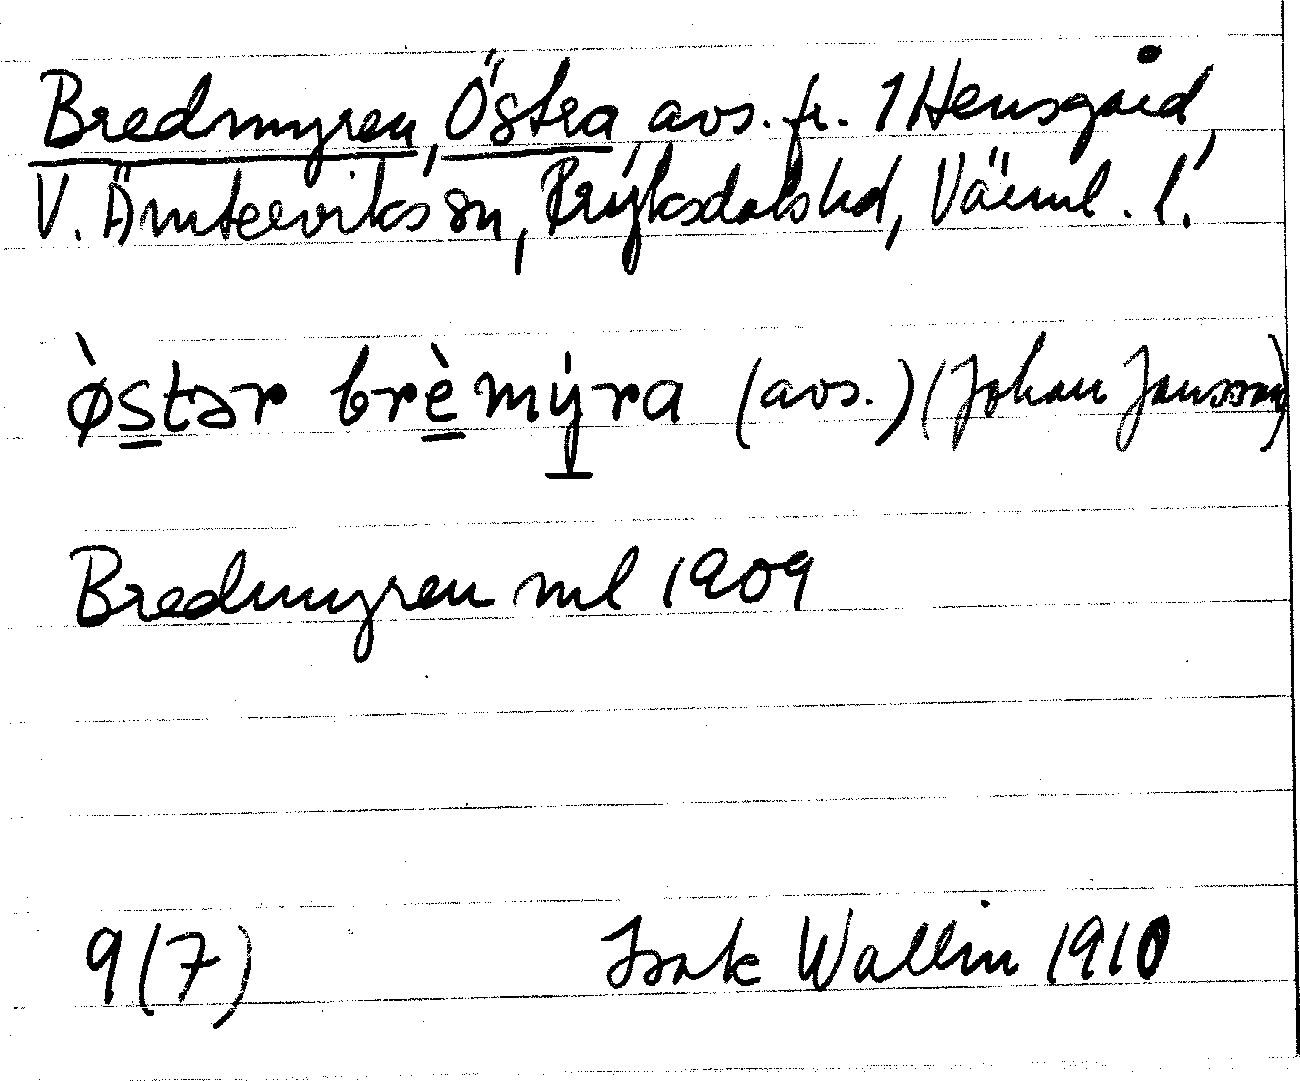 Bredmyren, Östra, avs. fr. 1 Hensgård,
V. Ämterviks sn, Fryksdals hd, Värml. l.
ø̀stər brèmýra (avs.) (Johan Jansson)
Bredmyren ml 1909
9 (7) Isak Wallin 1910